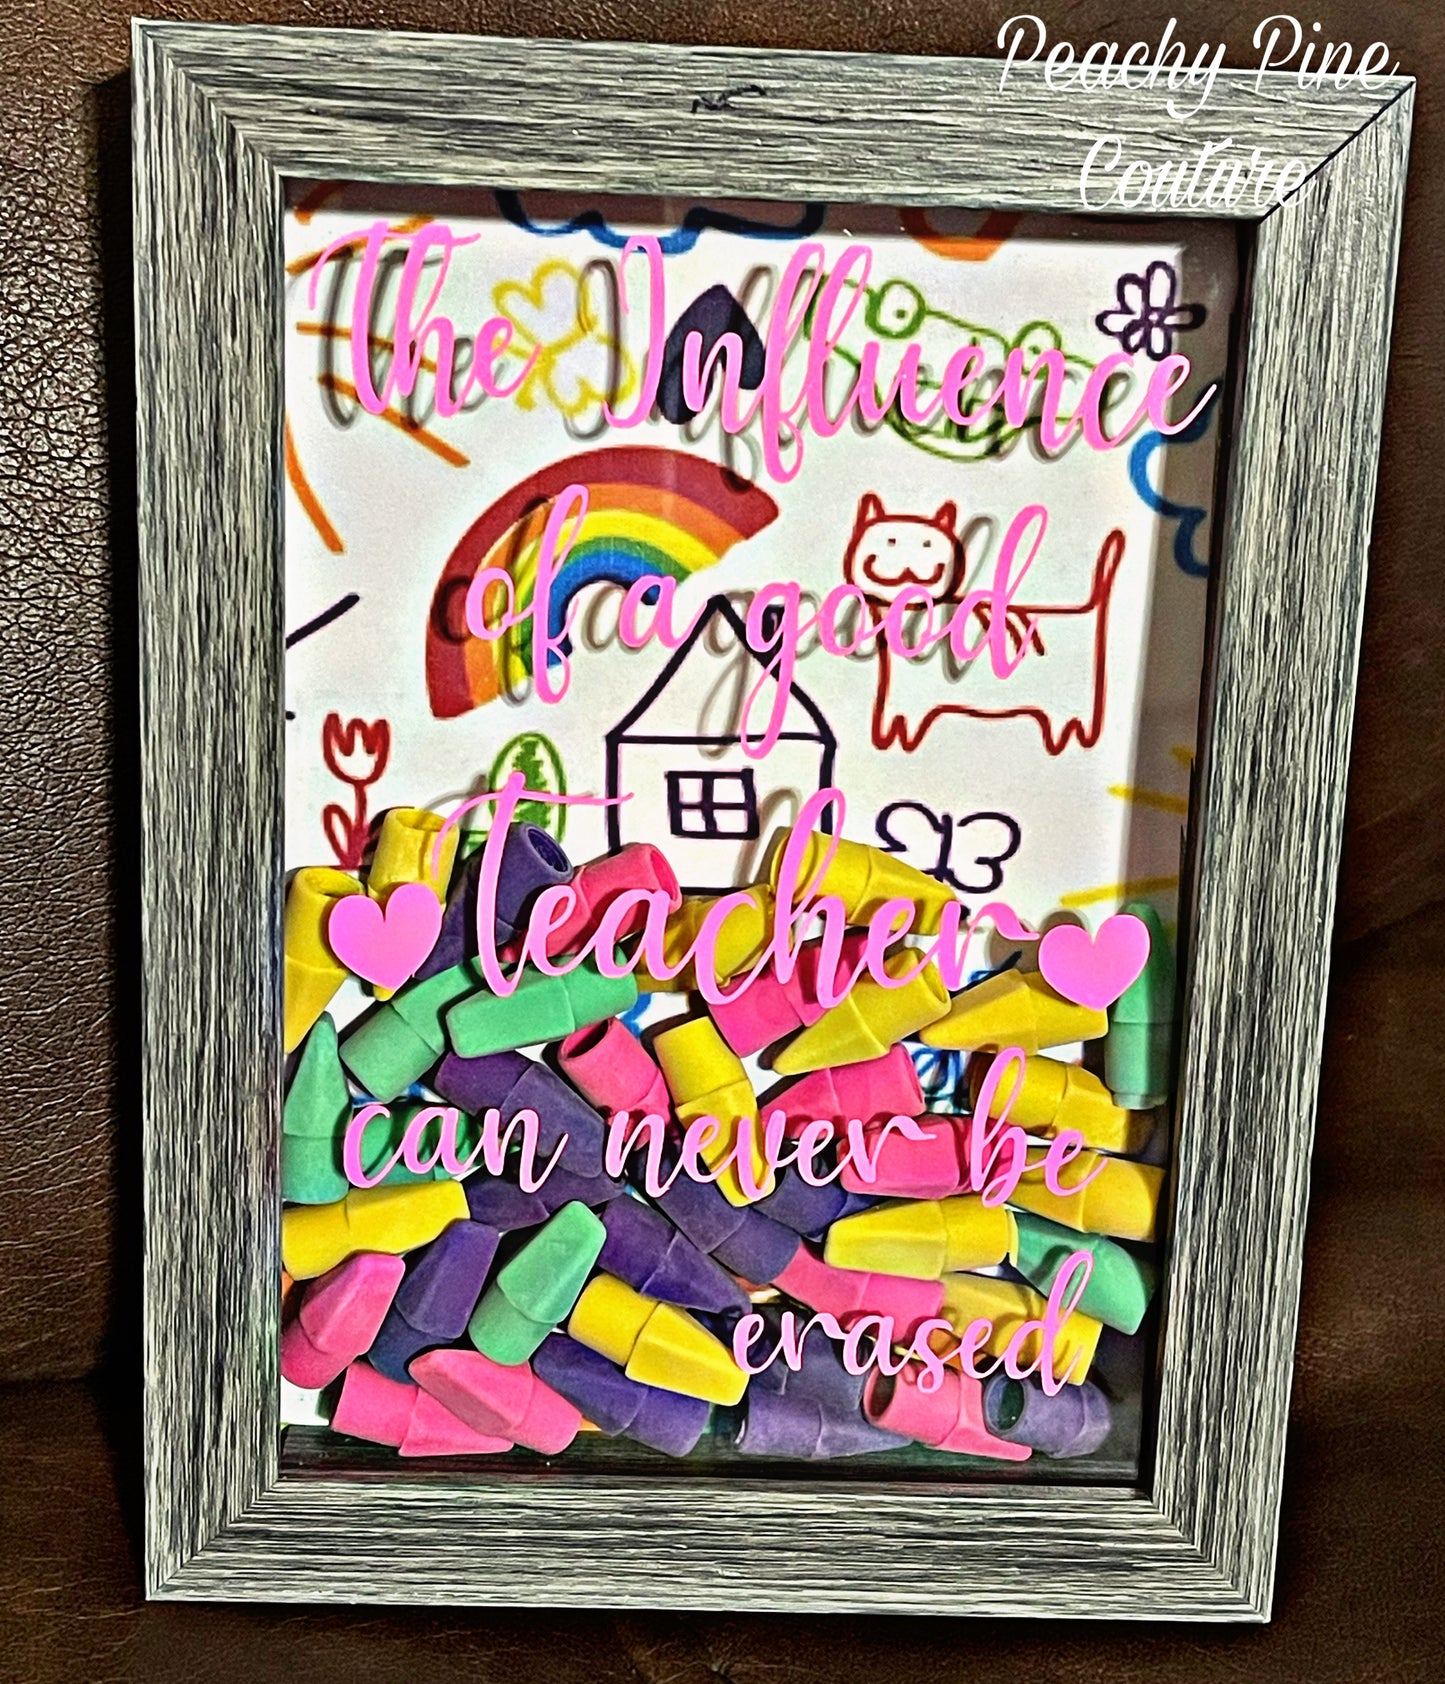 Peachy Pine
Couture
the Influence
of a good
teacher
can never be
erased